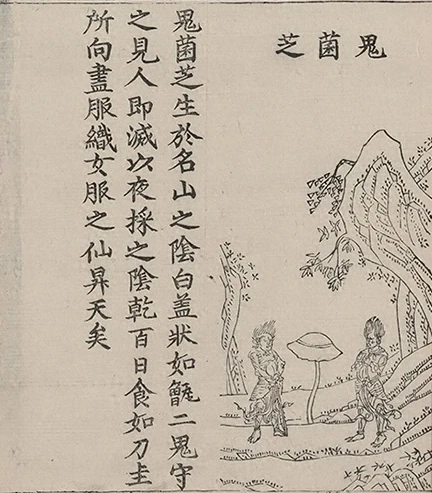 鬼菌芝
鬼菌芝生於名山之陰白盖狀如二鬼守
之見人即滅以夜採之陰乾百日食如刀圭
所向盡服織女服之仙昇天矣